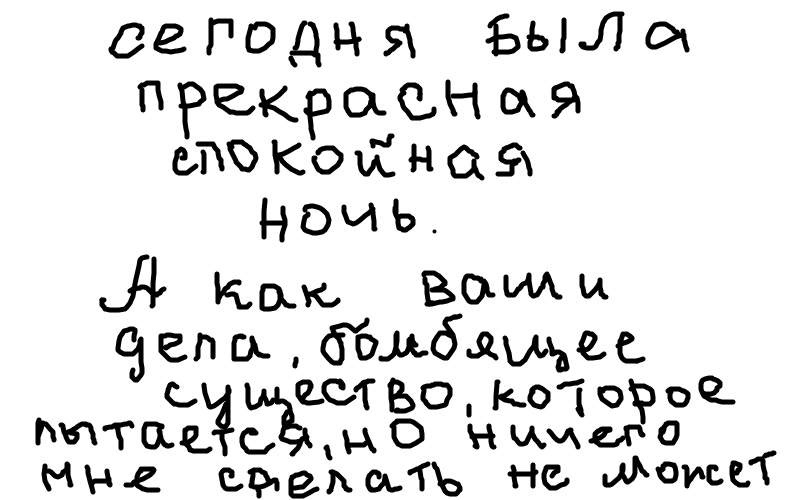 сегодня была
прекрасная
спокойная
ночь.
А как ваши
дела, бомбящее
существо, которое
пытается, но ничего
мне сделать не может